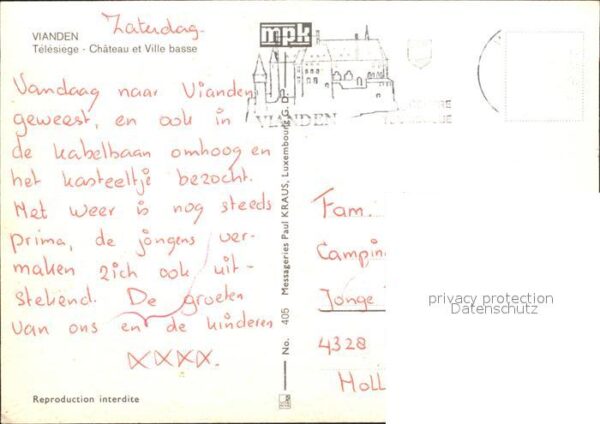 Zaterdag.
VIANDEN
Télésiege - Château et Ville basse
mpk
VIANDEN
Vandaag naar Vianden
geweest, en ook in
de kabelbaan omhoog en
het kasteeltje bezocht.
Het weer is nog steeds
prima, de jongens ver-
maken zich ook uit-
stekend. De groeten
van ons en de kinderen
XXXX.
No. 405 Messageries Paul KRAUS, Luxembourg G. D.
Fam.
Campin
Jonge
4328
Holl
privacy protection
Datenschutz
Reproduction interdite